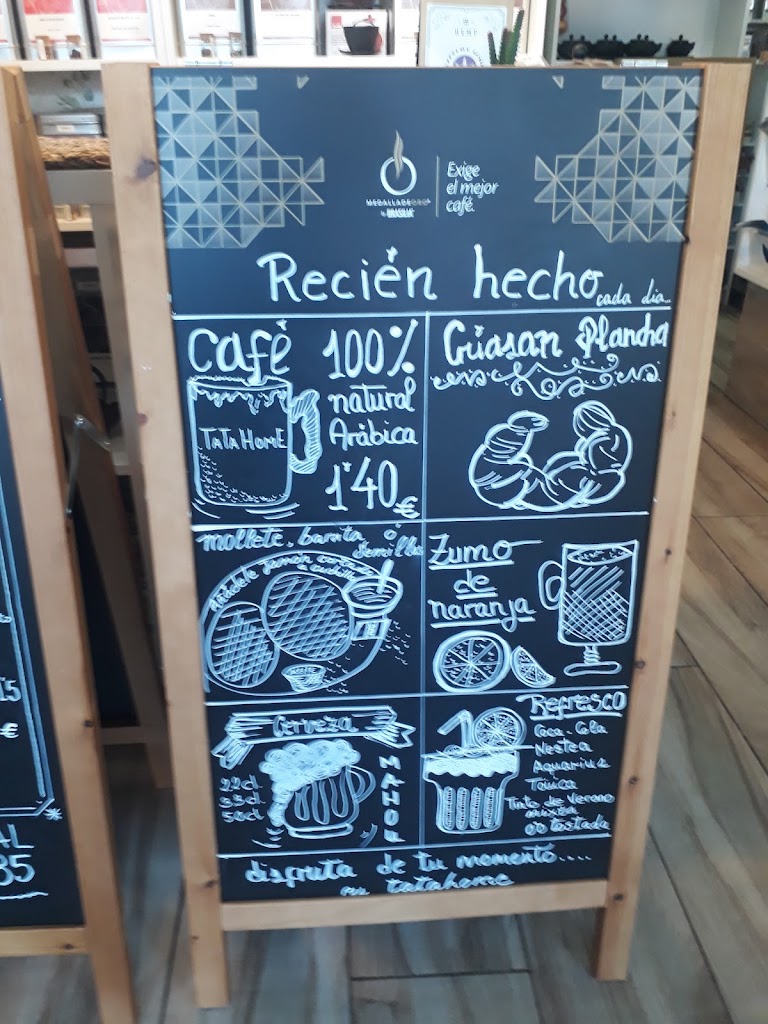 MEDALLADEORO
BRASILIA
Exige
el mejor
café.
Recién hecho cada dia..
Café
100%
natural
Arábica
TATA HOME
1'40 €
Güasan Plancha
mollete, barita ó
Semillas
Añadele jamón cortado
a cuchillo
Zumo
de
naranja
Cerveza
22cl.
33cl.
50cl
MAHOU
Refresco
Coca-Cola
Nestea
Aquarius
Tónica
Tinto de Verano
00 tostada
disfruta de tu momento....
tatahome
15
€
AL
85